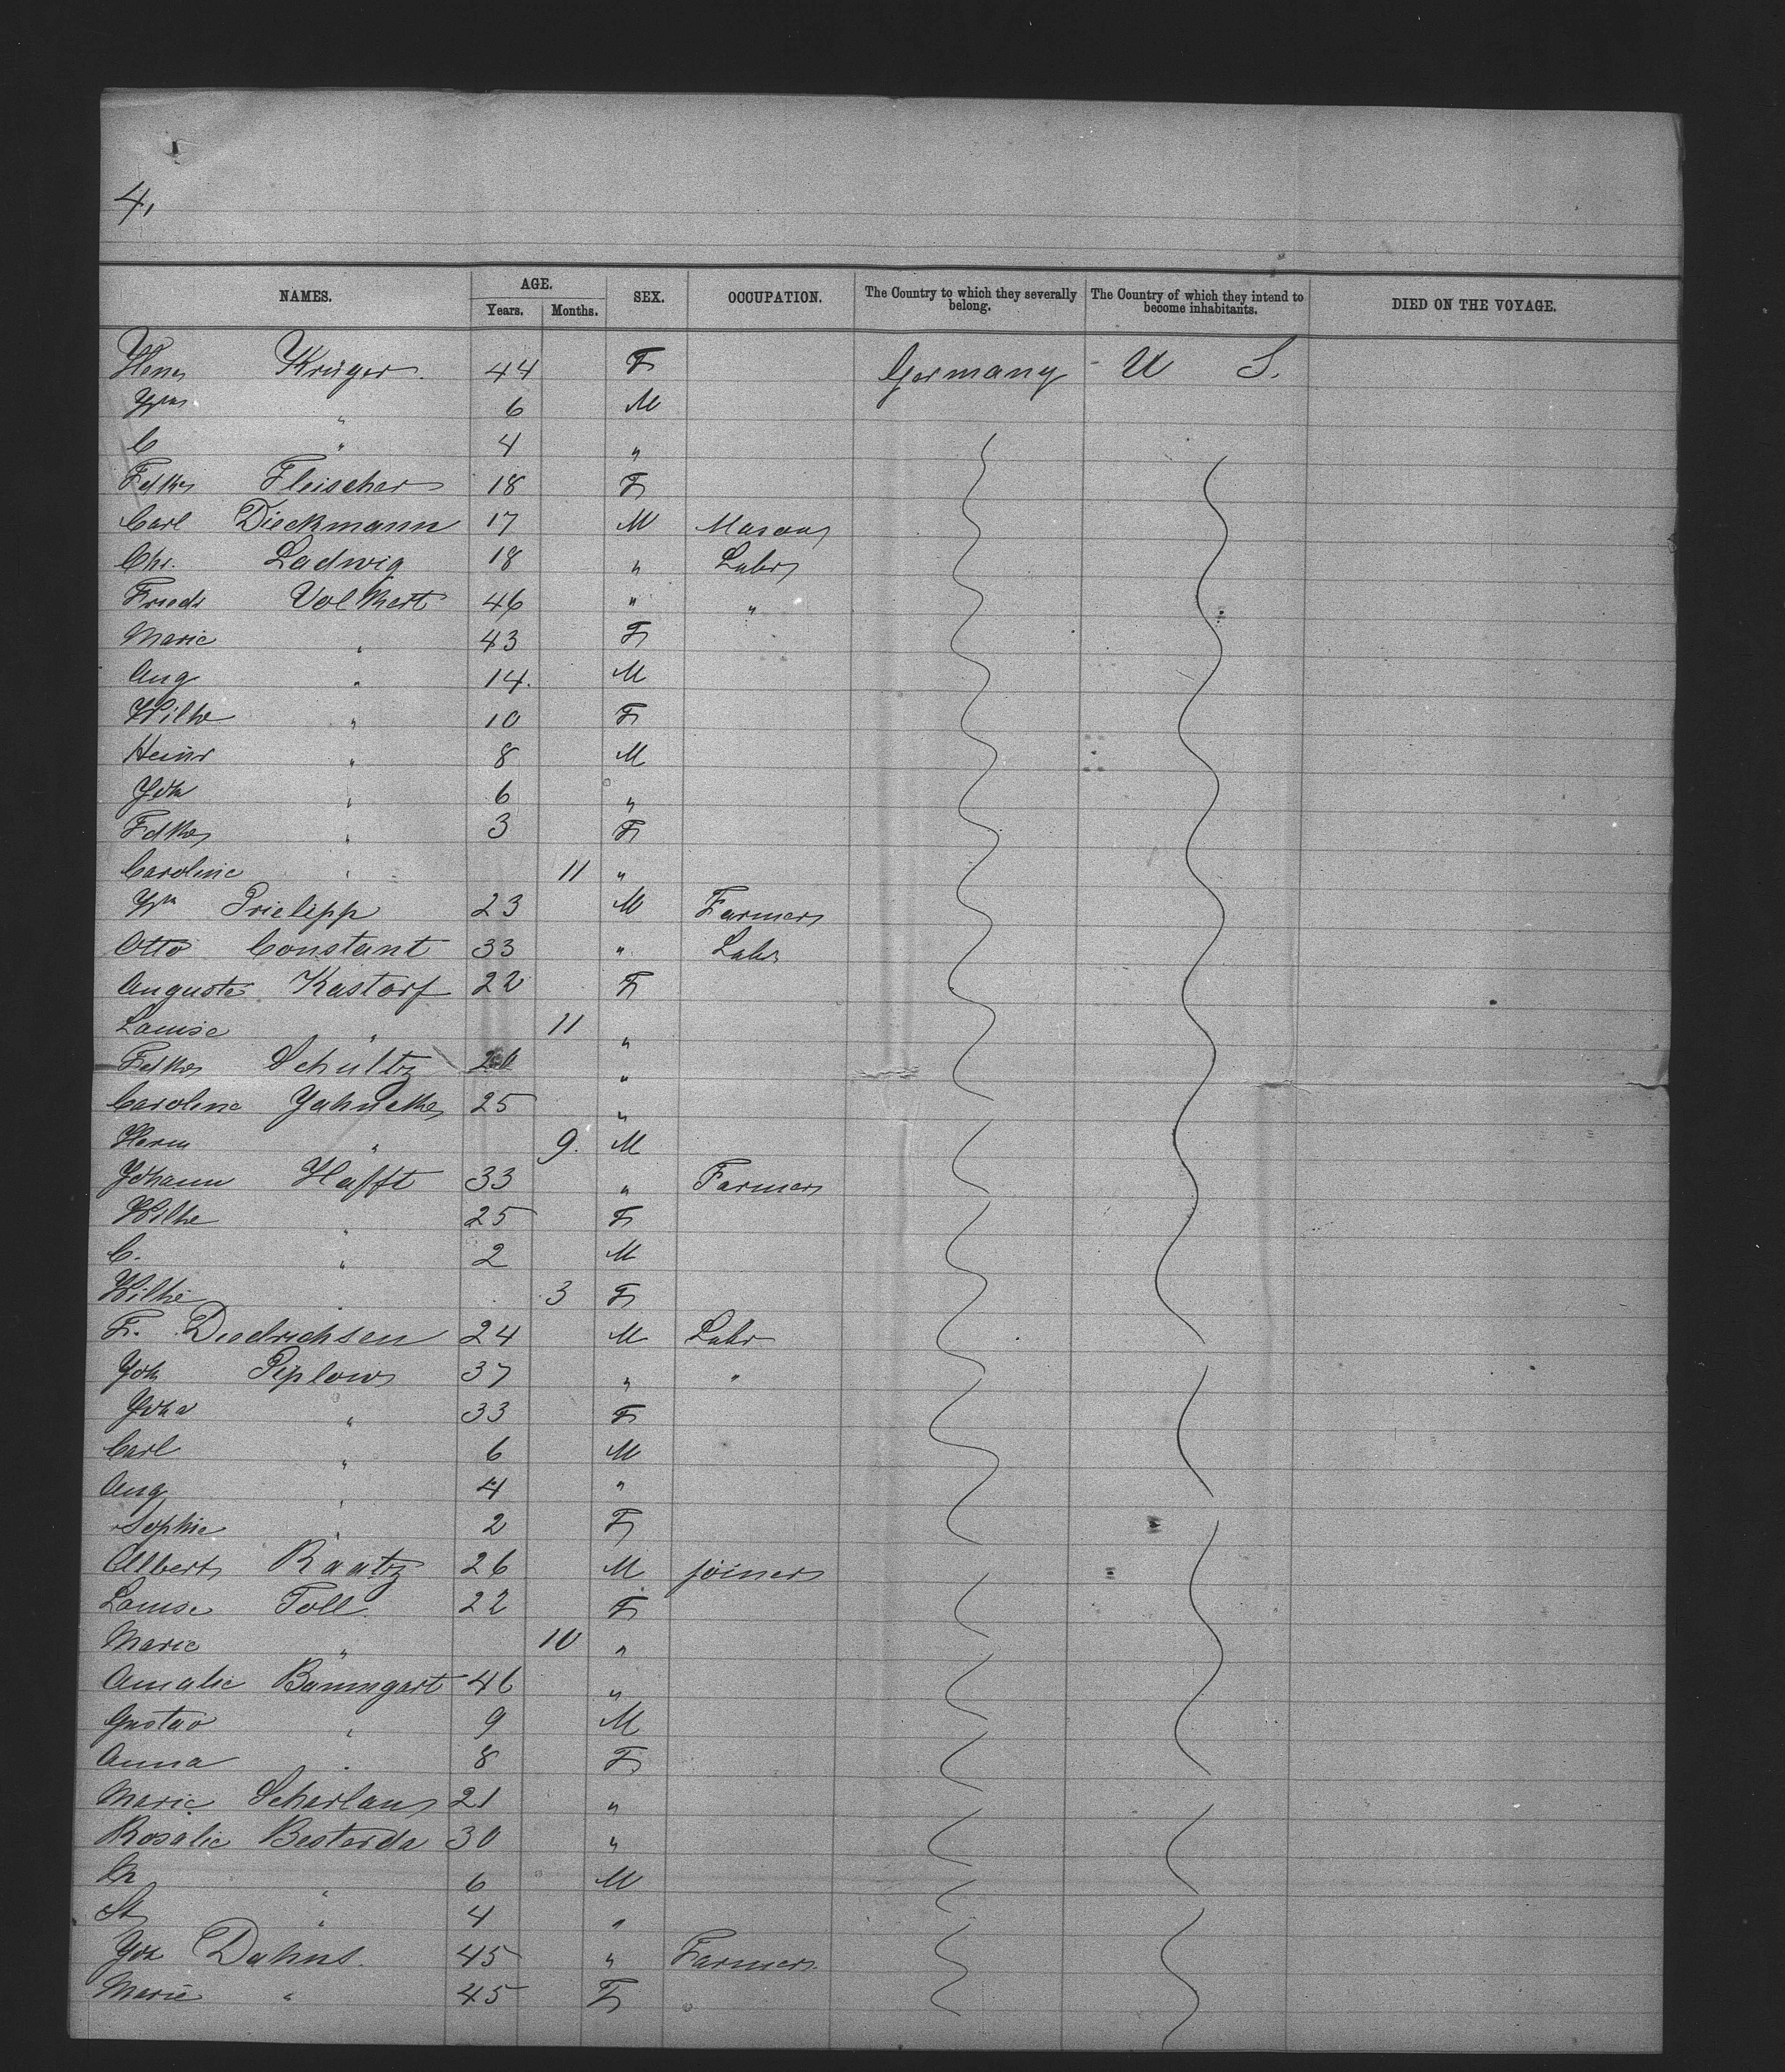 4,
NAMES. AGE. SEX. OCCUPATION. The Country to which they severally belong. The Country of which they intend to become inhabitants. DIED ON THE VOYAGE.
Years. Months.
Krüger 44 F Germany U S.
Wm " 6 M
C " 4 "
Fdke Fleischer 18 F
Carl Dieckmann 17 M Mason
Chr. Ladwig 18 " Labr
Friedr Volkert 46 " "
Marie " 43 F
Aug " 14. M
Wilhe " 10 F
Heinr " 8 M
Joh " 6 "
Fdke " 3 F
Caroline " 11 "
Wm Prielipp 23 M Farmer
Otto Constant 33 " Labr
Auguste Kastorf 22 F
Louise " 11 "
Fdke Schultz 20 "
Caroline Jahncke 25 "
Herm " 9. M
Johann Hafft 33 " Farmer
Wilhe " 25 F
C. " 2 M
Wilhe " 3 F
Fr. Diedrichsen 24 M Labr
Joh Piplow 37 " "
Joha " 33 F
Carl " 6 M
Aug " 4 "
Sophie " 2 F
Albert Raatz 26 M joiner
Louise Toll 22 F
Marie " 10 "
Amalie Baumgart 46 "
Gustav " 9 M
Anna " 8 F
Marie Scherlau 21 "
Rosalie Besterda 30 "
" 6 M
St " 4 "
Joh Dahns. 45 " Farmer
Marie " 45 F